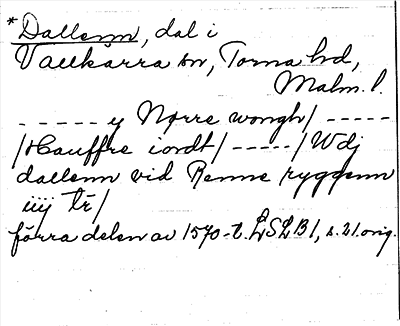 *Dallenn, dal i
Vallkärra sn, Torna hd,
Malm. l.
- - - - - y Nørre wongh/ - - - - -
/Hauffre iordt/ - - - - - /Wdj
dallenn vid Renne ryggenn
iiij tr/
förra delen av 1570-t. LSLB1, s. 21. orig.